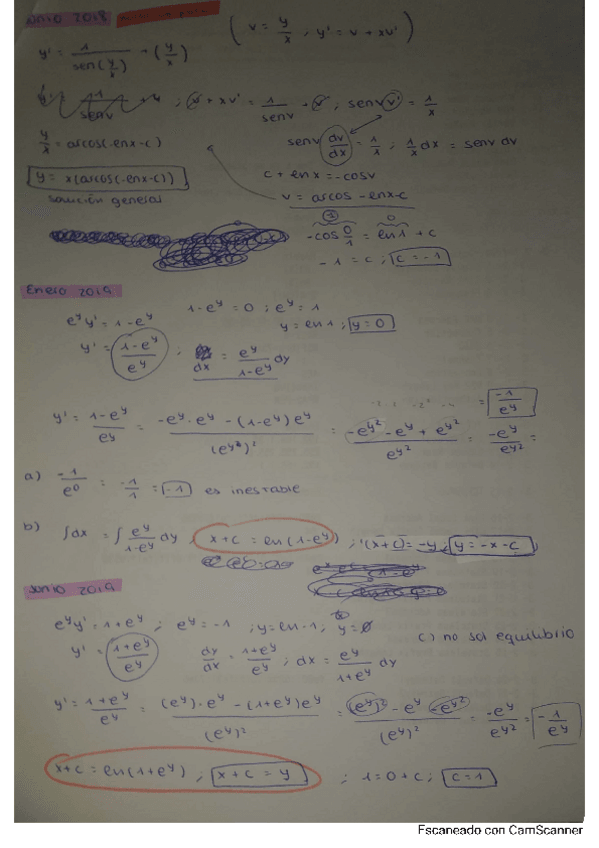 Junio 2018
( v = y/x ; y' = v + xv' )
y' = 1/sen(y/x) + (y/x)
; v + xv' = 1/senv + v ; senv v' = 1/x
y/x = arcos(-lnx-c)
senv dv/dx = 1/x ; 1/x dx = senv dv
c + lnx = -cosv
y = x(arcos(-lnx-c))
v = arcos -lnx-c
solución general
-cos 0/1 = ln1 + c
-1 = c ; c = -1
Enero 2019
e^y y' = 1-e^y
1-e^y = 0 ; e^y = 1
y = ln1 ; y=0
y' = (1-e^y)/e^y ; dx = e^y/(1-e^y) dy
y' = (1-e^y)/e^y = (-e^y · e^y - (1-e^y)e^y)/(e^y)² = (-e^y² - e^y + e^y²)/e^y² = -e^y/e^y² = -1/e^y
a) -1/e^0 = -1/1 = -1 es inestable
b) ∫dx = ∫ e^y/(1-e^y) dy x+c = ln(1-e^y) ; (x+c) = -y ; y = -x-c
Junio 2019
e^y y' = 1+e^y ; e^y = -1 ; y = ln-1 ;
c) no sol equilibrio
y' = (1+e^y)/e^y dy/dx = (1+e^y)/e^y ; dx = e^y/(1+e^y) dy
y' = (1+e^y)/e^y = ((e^y)·e^y - (1+e^y)e^y)/(e^y)² = ((e^y)² - e^y - e^y²)/(e^y)² = -e^y/e^y² = -1/e^y
x+c = ln(1+e^y) ; x+c = y ; 1=0+c ; c=1
Escaneado con CamScanner